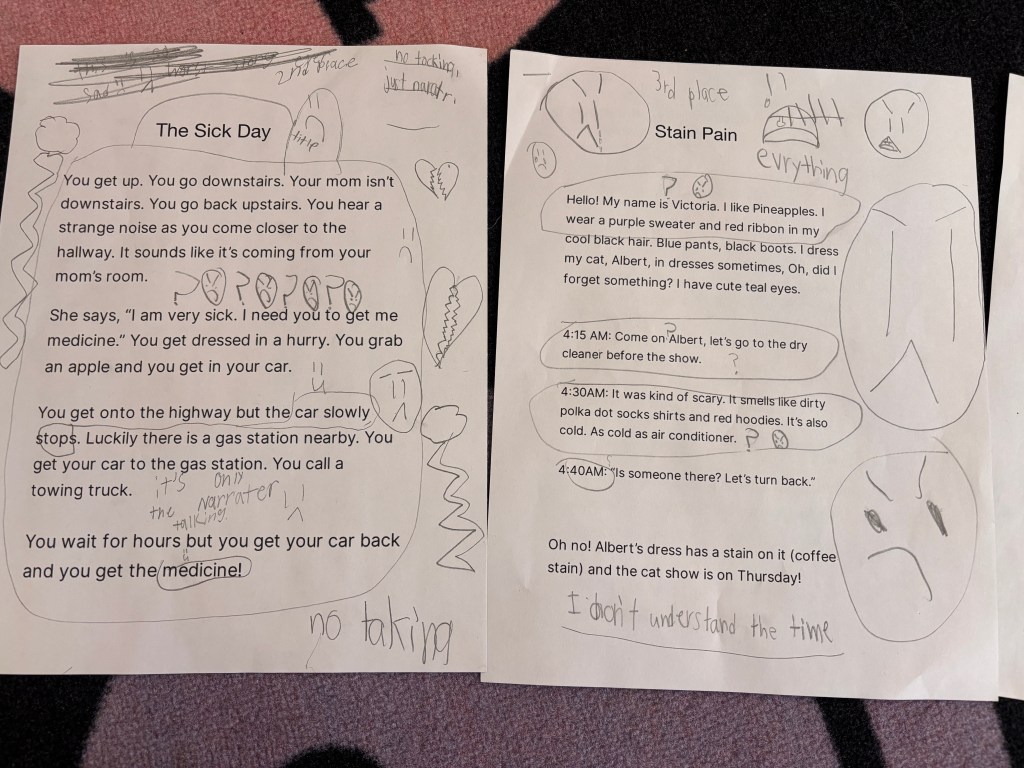 2nd place
no tacking,
just naratr.
The Sick Day
title
You get up. You go downstairs. Your mom isn't
downstairs. You go back upstairs. You hear a
strange noise as you come closer to the
hallway. It sounds like it's coming from your
mom's room.
? ? ? ?
She says, "I am very sick. I need you to get me
medicine." You get dressed in a hurry. You grab
an apple and you get in your car.
You get onto the highway but the car slowly
stops. Luckily there is a gas station nearby. You
get your car to the gas station. You call a
towing truck.
it's only
the narrater
talking.
You wait for hours but you get your car back
and you get the medicine!
no taking
3rd place
Stain Pain
evrything
?
Hello! My name is Victoria. I like Pineapples. I
wear a purple sweater and red ribbon in my
cool black hair. Blue pants, black boots. I dress
my cat, Albert, in dresses sometimes, Oh, did I
forget something? I have cute teal eyes.
?
4:15 AM: Come on Albert, let's go to the dry
cleaner before the show.
?
4:30AM: It was kind of scary. It smells like dirty
polka dot socks shirts and red hoodies. It's also
cold. As cold as air conditioner. ?
4:40AM: "Is someone there? Let's turn back."
Oh no! Albert's dress has a stain on it (coffee
stain) and the cat show is on Thursday!
I don't understand the time